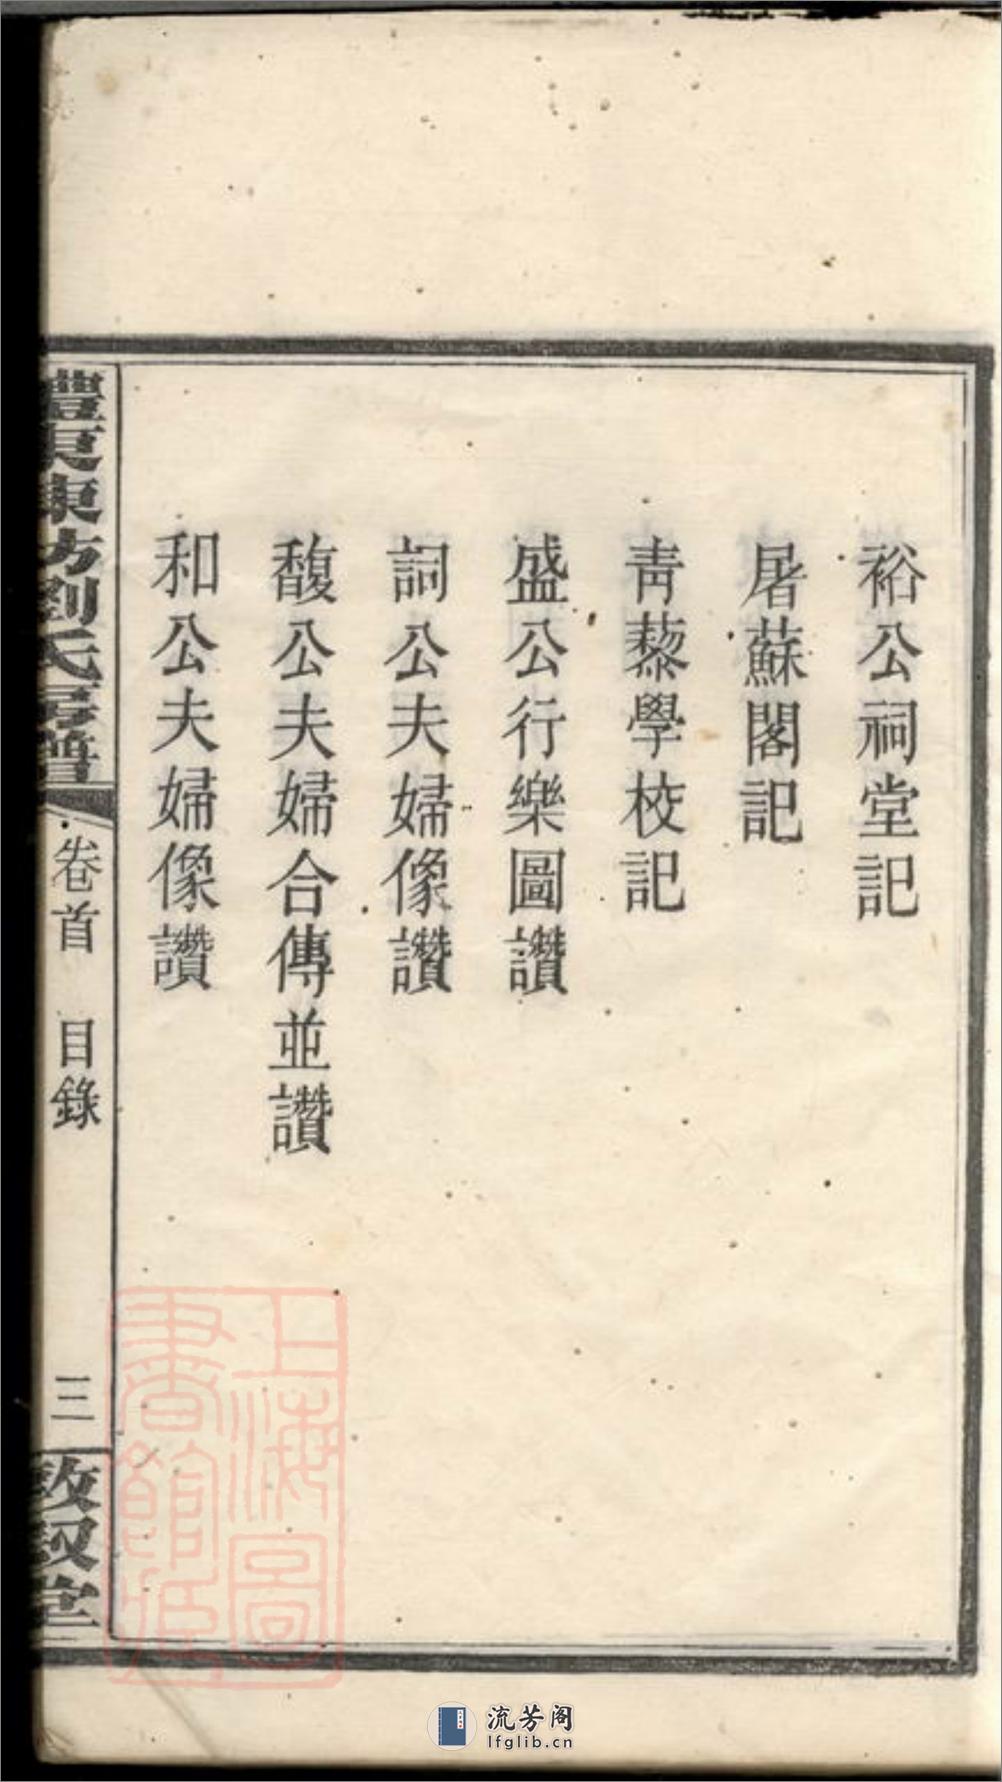 裕公祠堂記
屠蘇閣記
靑藜學校記
盛公行樂圖讚
詞公夫婦像讚
馥公夫婦合傳並讚
和公夫婦像讚
東坊劉氏房譜
卷首 目錄 三
敦叙堂
上海圖
書館藏
流芳阁
lfglib.cn